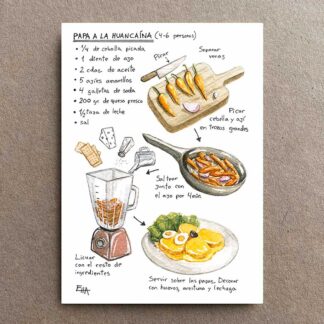 PAPA A LA HUANCAÍNA (4-6 personas)
• 1/4 de cebolla picada
• 1 diente de ajo
• 2 cdas. de aceite
• 5 ajíes amarillos
• 4 galletas de soda
• 200 gr. de queso fresco
• 1/2 taza de leche
• sal
Picar
Separar
venas
Picar
cebolla y ají
en trozos grandes
Saltear
junto con
el ajo por 4 min
Licuar
con el resto de
ingredientes
Servir sobre las papas. Decorar
con huevos, aceituna y lechuga.